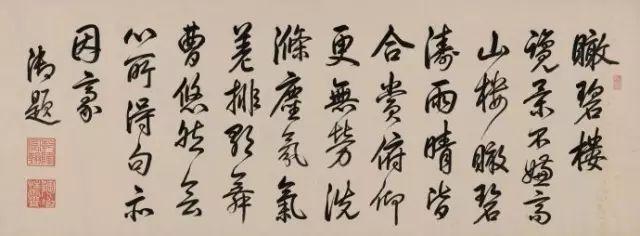 瞰碧樓
覽景不嫌高
山樓瞰碧
濤雨晴皆
合賞俯仰
更無勞洗
滌塵氛氣
差排歌舞
曹悠然會
心所得句亦
因豪
御題